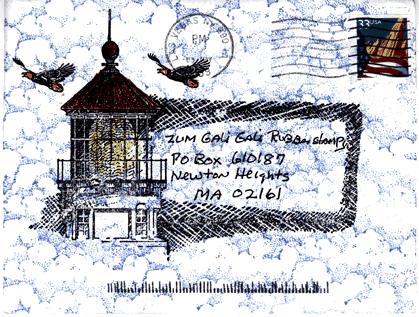 PM
33 USA
ZUM GALI GALI Rubberstamps
PO Box 610187
Newton Heights
MA 02161